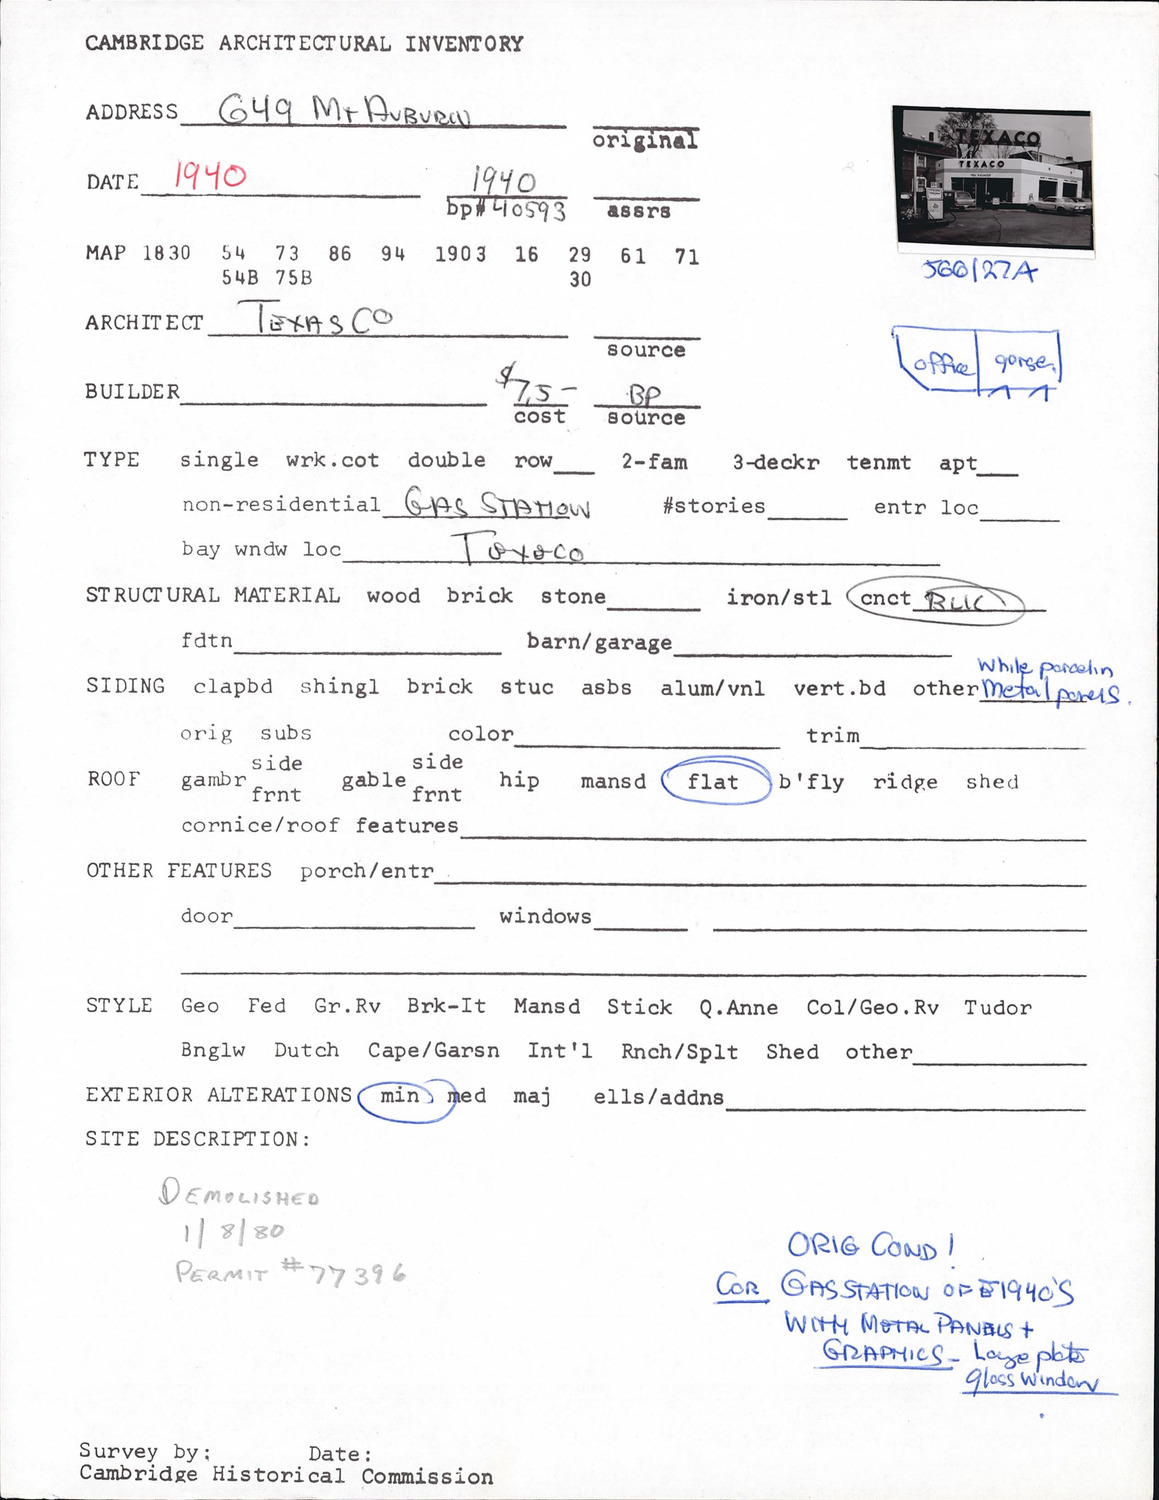 CAMBRIDGE ARCHITECTURAL INVENTORY
ADDRESS 649 Mt AUBURN
original
TEXACO
TEXACO
DATE 1940 1940
bp# 40593 assrs
MAP 1830 54 73 86 94 1903 16 29 61 71
54B 75B 30
566/27A
ARCHITECT TEXAS CO
source
office garage
BUILDER $7,5- BP
cost source
TYPE single wrk.cot double row 2-fam 3-deckr tenmt apt
non-residential GAS STATION #stories entr loc
bay wndw loc Texaco
STRUCTURAL MATERIAL wood brick stone iron/stl cnct BLK
fdtn barn/garage
White porcelin
SIDING clapbd shingl brick stuc asbs alum/vnl vert.bd other Metal panels.
orig subs color trim
side side
ROOF gambr gable hip mansd flat b'fly ridge shed
frnt frnt
cornice/roof features
OTHER FEATURES porch/entr
door windows
STYLE Geo Fed Gr.Rv Brk-It Mansd Stick Q.Anne Col/Geo.Rv Tudor
Bnglw Dutch Cape/Garsn Int'l Rnch/Splt Shed other
EXTERIOR ALTERATIONS min med maj ells/addns
SITE DESCRIPTION:
DEMOLISHED
1/8/80
PERMIT #77396
ORIG COND!
COR GAS STATION OF E1940'S
WITH METAL PANELS +
GRAPHICS - Large plate
glass window
Survey by: Date:
Cambridge Historical Commission